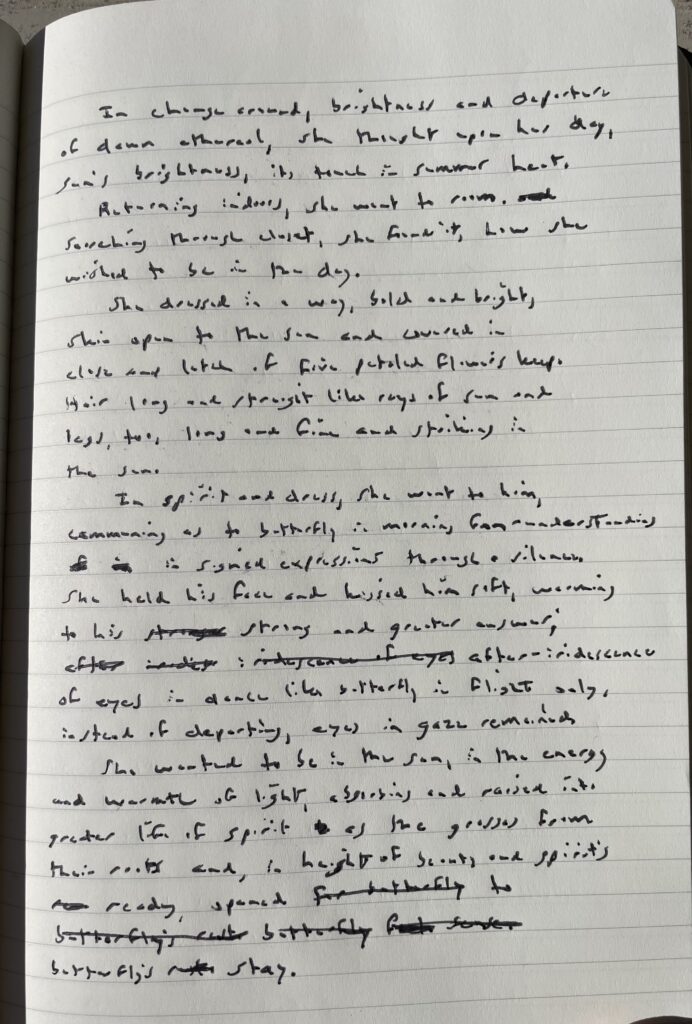 In change around, brightness and departure
of dawn ethereal, she thought upon her day,
sun's brightness, its touch in summer heat.
Returning indoors, she went to room.
Searching through closet, she found it, how she
wished to be in the day.
She dressed in a way, bold and bright,
skin open to the sun and covered in
close and latch of five petaled flowers keep.
Hair long and straight like rays of sun and
legs, too, long and fine and striking in
the sun.
In spirit and dress, she went to him,
communing as to butterfly in morning from understanding
in signed expressions through a silence.
She held his face and kissed him soft, warming
to his strong and greater answer,
after-iridescence
of eyes in dance like butterfly in flight only,
instead of departing, eyes in gaze remained
She wanted to be in the sun, in the energy
and warmth of light, absorbing and raised into
greater life of spirit as the grasses from
their roots and, in height of beauty and spirit's
ready, opened to
butterfly's stay.